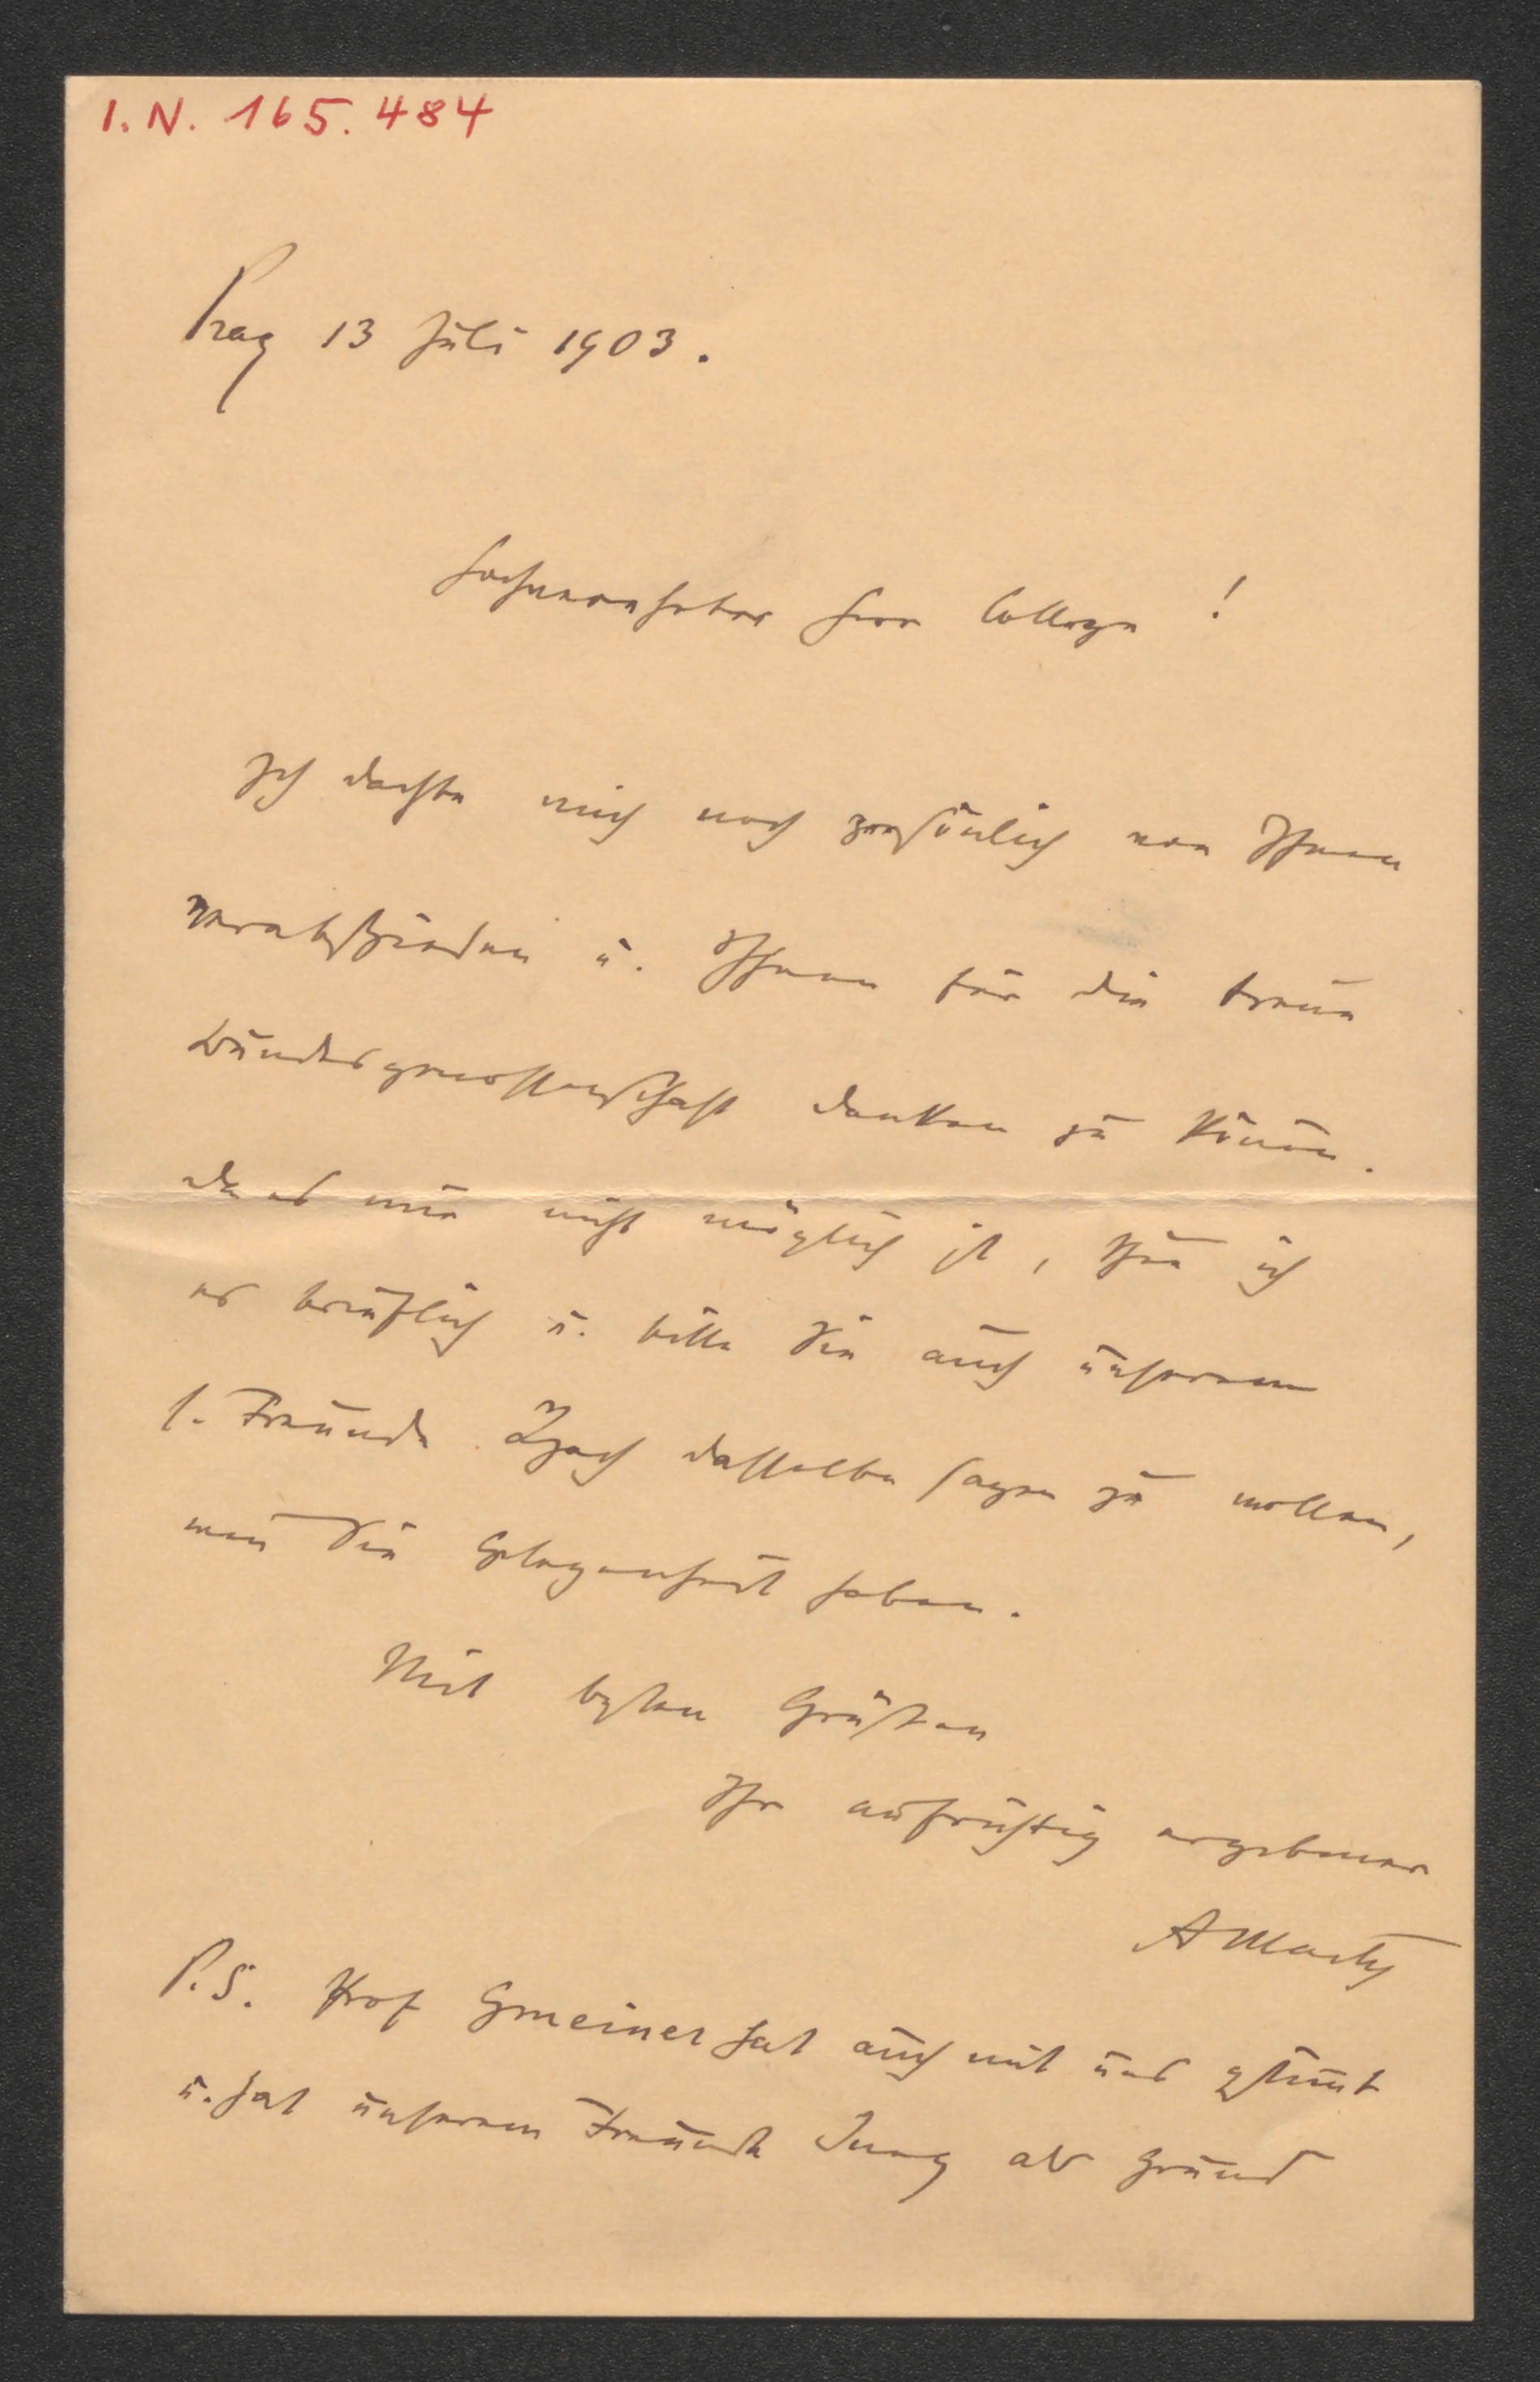 I. N. 165.484
Prag 13 Juli 1903.
Hochverehrter Herr College!
Ich dachte mich noch persönlich von Ihnen
verabschieden u. Ihnen für die treue
Bundesgenossenschaft danken zu könen.
Da es mir nicht möglich ist, thue ich
es brieflich u. bitte Sie auch unserem
l. Freunde dasselbe sagen zu wollen,
wen Sie Gelegenheit haben.
Mit besten Grüßen
Ihr aufrichtig ergebener
A Marty
P.S. Prof Gmeiner hat auch mit uns gestimt
u. hat unserem Freunde Jung als Grund